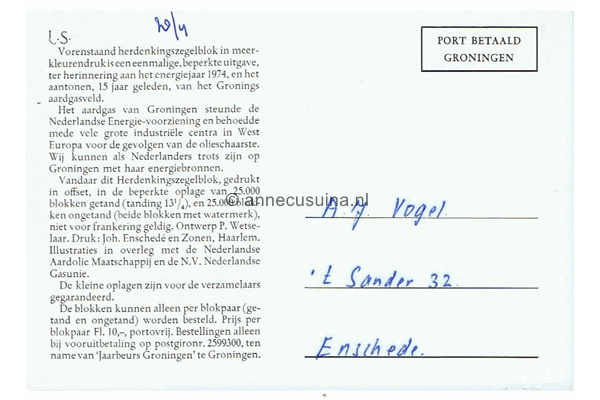 20/4
L.S.
Vorenstaand herdenkingszegelblok in meer-
kleurendruk is een eenmalige, beperkte uitgave,
ter herinnering aan het energiejaar 1974, en het
aantonen, 15 jaar geleden, van het Gronings
aardgasveld.
Het aardgas van Groningen steunde de
Nederlandse Energie-voorziening en behoedde
mede vele grote industriële centra in West
Europa voor de gevolgen van de olieschaarste.
Wij kunnen als Nederlanders trots zijn op
Groningen met haar energiebronnen.
Vandaar dit Herdenkingszegelblok, gedrukt
in offset, in de beperkte oplage van 25.000
blokken getand (tanding 13¹/₄), en 25.000 blok-
ken ongetand (beide blokken met watermerk),
niet voor frankering geldig. Ontwerp P. Wetse-
laar. Druk: Joh. Enschedé en Zonen, Haarlem.
Illustraties in overleg met de Nederlandse
Aardolie Maatschappij en de N.V. Nederlandse
Gasunie.
De kleine oplagen zijn voor de verzamelaars
gegarandeerd.
De blokken kunnen alleen per blokpaar (ge-
tand en ongetand) worden besteld. Prijs per
blokpaar Fl. 10,–, portovrij. Bestellingen alleen
bij vooruitbetaling op postgironr. 2599300, ten
name van ‘Jaarbeurs Groningen’ te Groningen.
PORT BETAALD
GRONINGEN
© annecusuina.nl
A.J. Vogel.
't Sander 32.
Enschede.